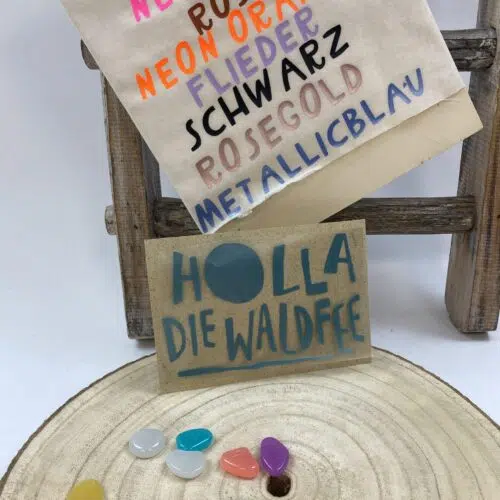 NEON ORA
FLIEDER
SCHWARZ
ROSEGOLD
METALLICBLAU
HOLLA
DIE WALDFEE